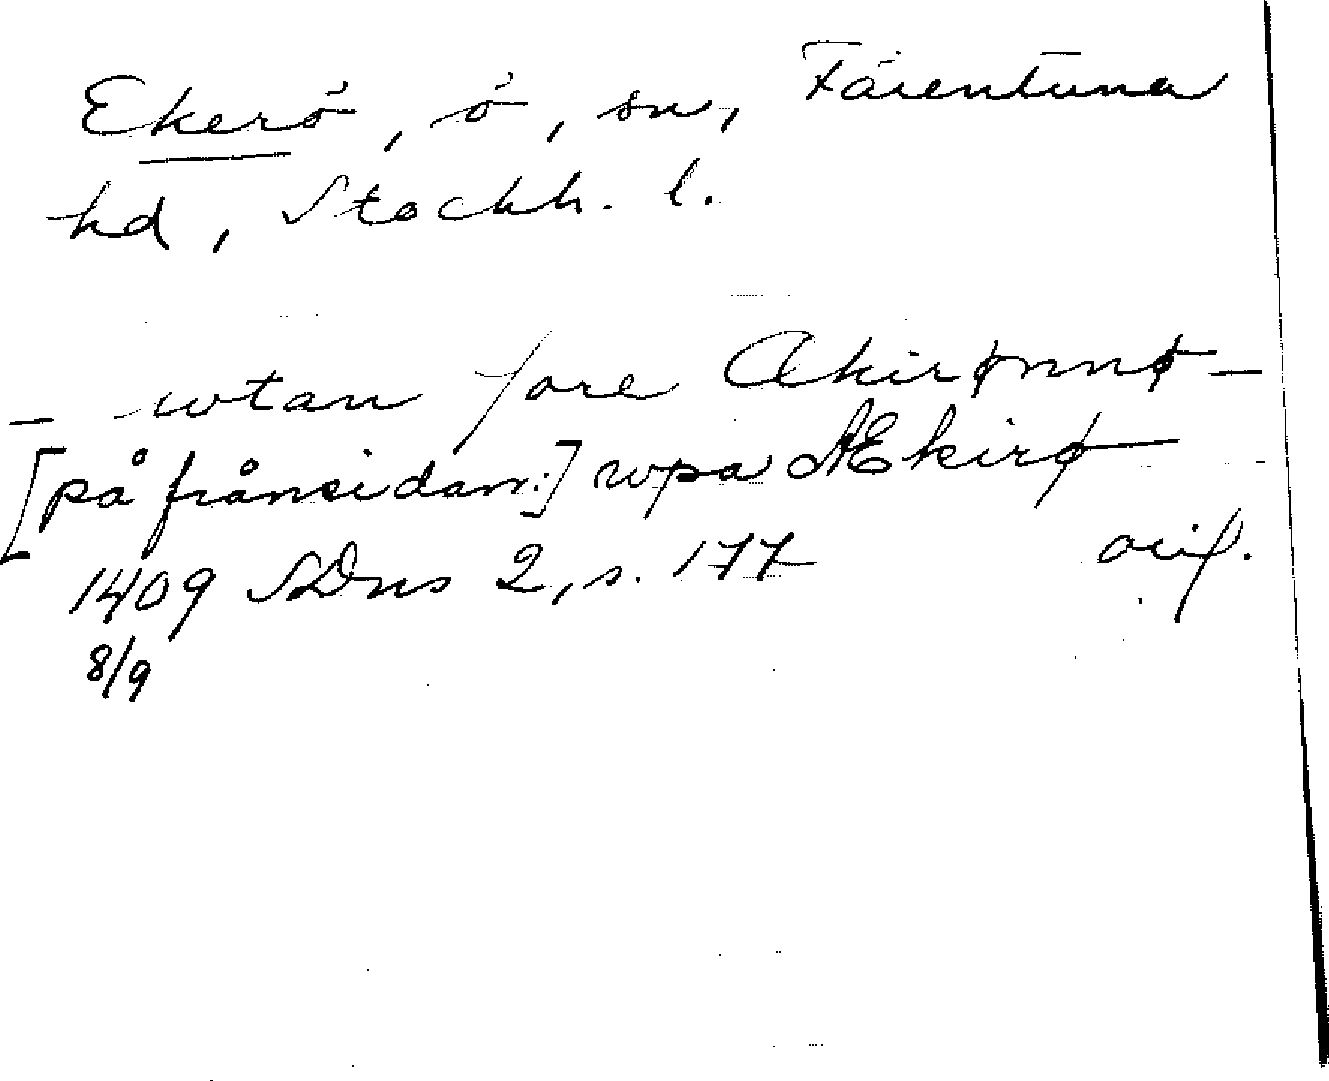 Ekerö, ö, sn, Färentuna
hd, Stockh. l.
– wtan fore Ækirønnø –
[på frånsidan:] wpa Ækirø
1409 SDns 2, s. 177 orif.
8/9